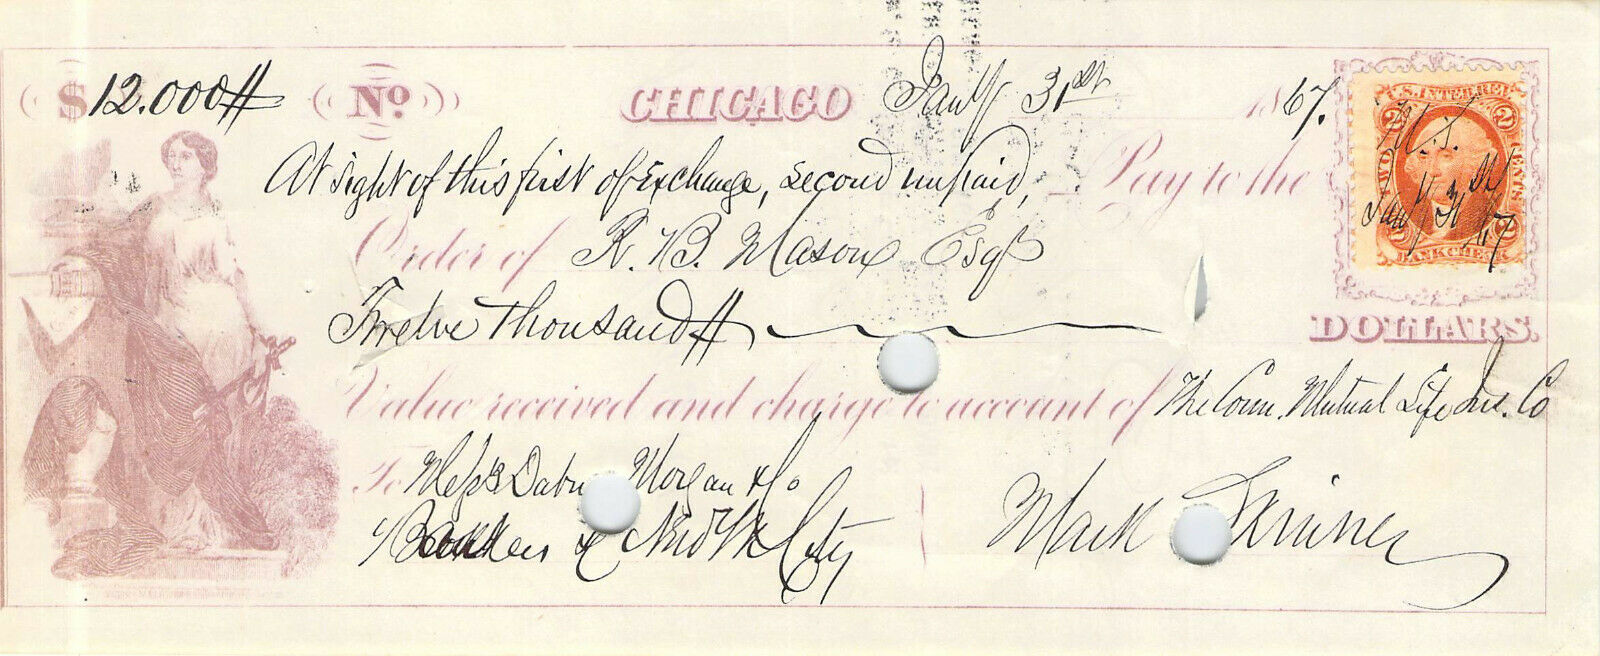 $12.000 No CHICAGO Jany 31st 1867.
At sight of this first of Exchange, second unpaid, Pay to the
Order of R. B. Mason Esqr
Twelve thousand DOLLARS.
Value received and charge to account of The Conn. Mutual Life Ins. Co
To Messrs Dabn Morgan & Co
Bankers New York City
Mark Skinner
U.S. INTER. REV.
2 2
TWO CENTS
M. S.
Jany 31st 67
2 2
BANK CHECK